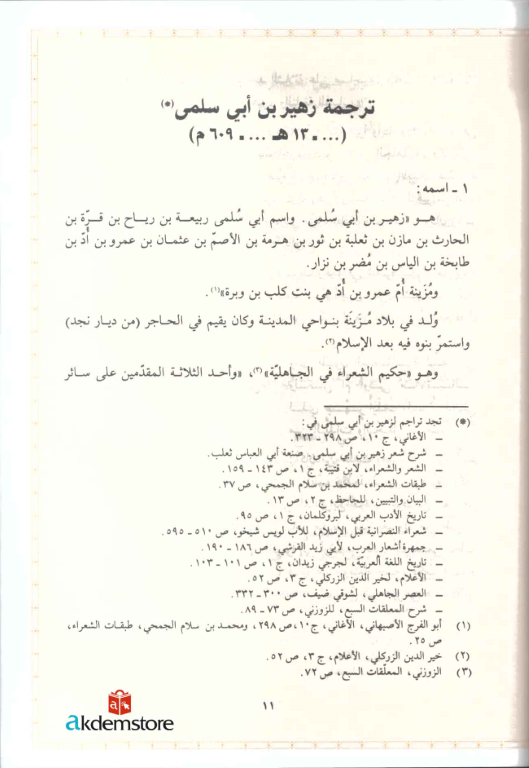 ترجمة زهير بن أبي سلمى(*)
(... ـ ١٣ هـ ... ـ ٦٠٩ م)
١ ـ اسمه:
هـو «زهيـر بن أبي سُلمى. واسم أبي سُلمى ربيعـة بن ريـاح بن قـرّة بن
الحارث بن مازن بن ثعلبة بن ثور بن هـرمة بن الأصمّ بن عثمـان بن عمرو بن أدّ بن
طابخة بن الياس بن مُضر بن نزار.
ومُزَينة أمّ عمرو بن أدّ هي بنت كلب بن وبرة»(١).
وُلـد في بلاد مُـزَينَة بنـواحي المدينـة وكان يقيم في الحـاجر (من ديـار نجد)
واستمرّ بنوه فيه بعد الإسلام(٢).
وهـو «حكيم الشعراء في الجـاهليّة»(٣)، «وأحـد الثلاثـة المقدّمين على سـائر
(*) تجد تراجم لزهير بن أبي سلمى في:
ـ الأغاني، ج ١٠، ص ٢٩٨ ـ ٣٢٣.
ـ شرح شعر زهير بن أبي سلمى. صنعة أبي العباس ثعلب.
ـ الشعر والشعراء، لابن قتيبة، ج ١، ص ١٤٣ ـ ١٥٩.
ـ طبقات الشعراء، لمحمد بن سلام الجمحي، ص ٣٧.
ـ البيان والتبيين، للجاحظ، ج ٢، ص ١٣.
ـ تاريخ الأدب العربي، لبروكلمان، ج ١، ص ٩٥.
ـ شعراء النصرانية قبل الإسلام، للأب لويس شيخو، ص ٥١٠ ـ ٥٩٥.
ـ جمهرة أشعار العرب، لأبي زيد القرشي، ص ١٨٦ ـ ١٩٠.
ـ تاريخ اللغة العربية، لجرجي زيدان، ج ١، ص ١٠١ ـ ١٠٣.
ـ الأعلام، لخير الدين الزركلي، ج ٣، ص ٥٢.
ـ العصر الجاهلي، لشوقي ضيف، ص ٣٠٠ ـ ٣٣٢.
ـ شرح المعلقات السبع، للزوزني، ص ٧٣ ـ ٨٩.
(١) أبو الفرج الأصبهاني، الأغاني، ج ١٠، ص ٢٩٨، ومحمـد بن سلام الجمحي، طبقـات الشعراء،
ص ٢٥.
(٢) خير الدين الزركلي، الأعلام، ج ٣، ص ٥٢.
(٣) الزوزني، المعلّقات السبع، ص ٧٢.
١١
akdemstore